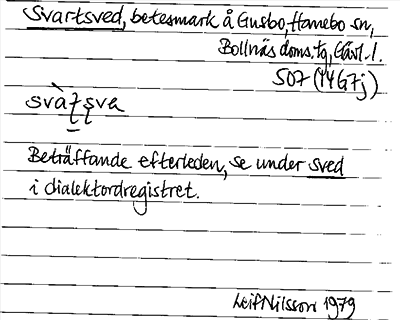 Svartsved, betesmark å Gusbo, Hanebo sn,
Bollnäs doms.tg, Gävl. l.
SO7 (14G7j)
Beträffande efterleden, se under sved
i dialektordregistret.
Leif Nilsson 1979